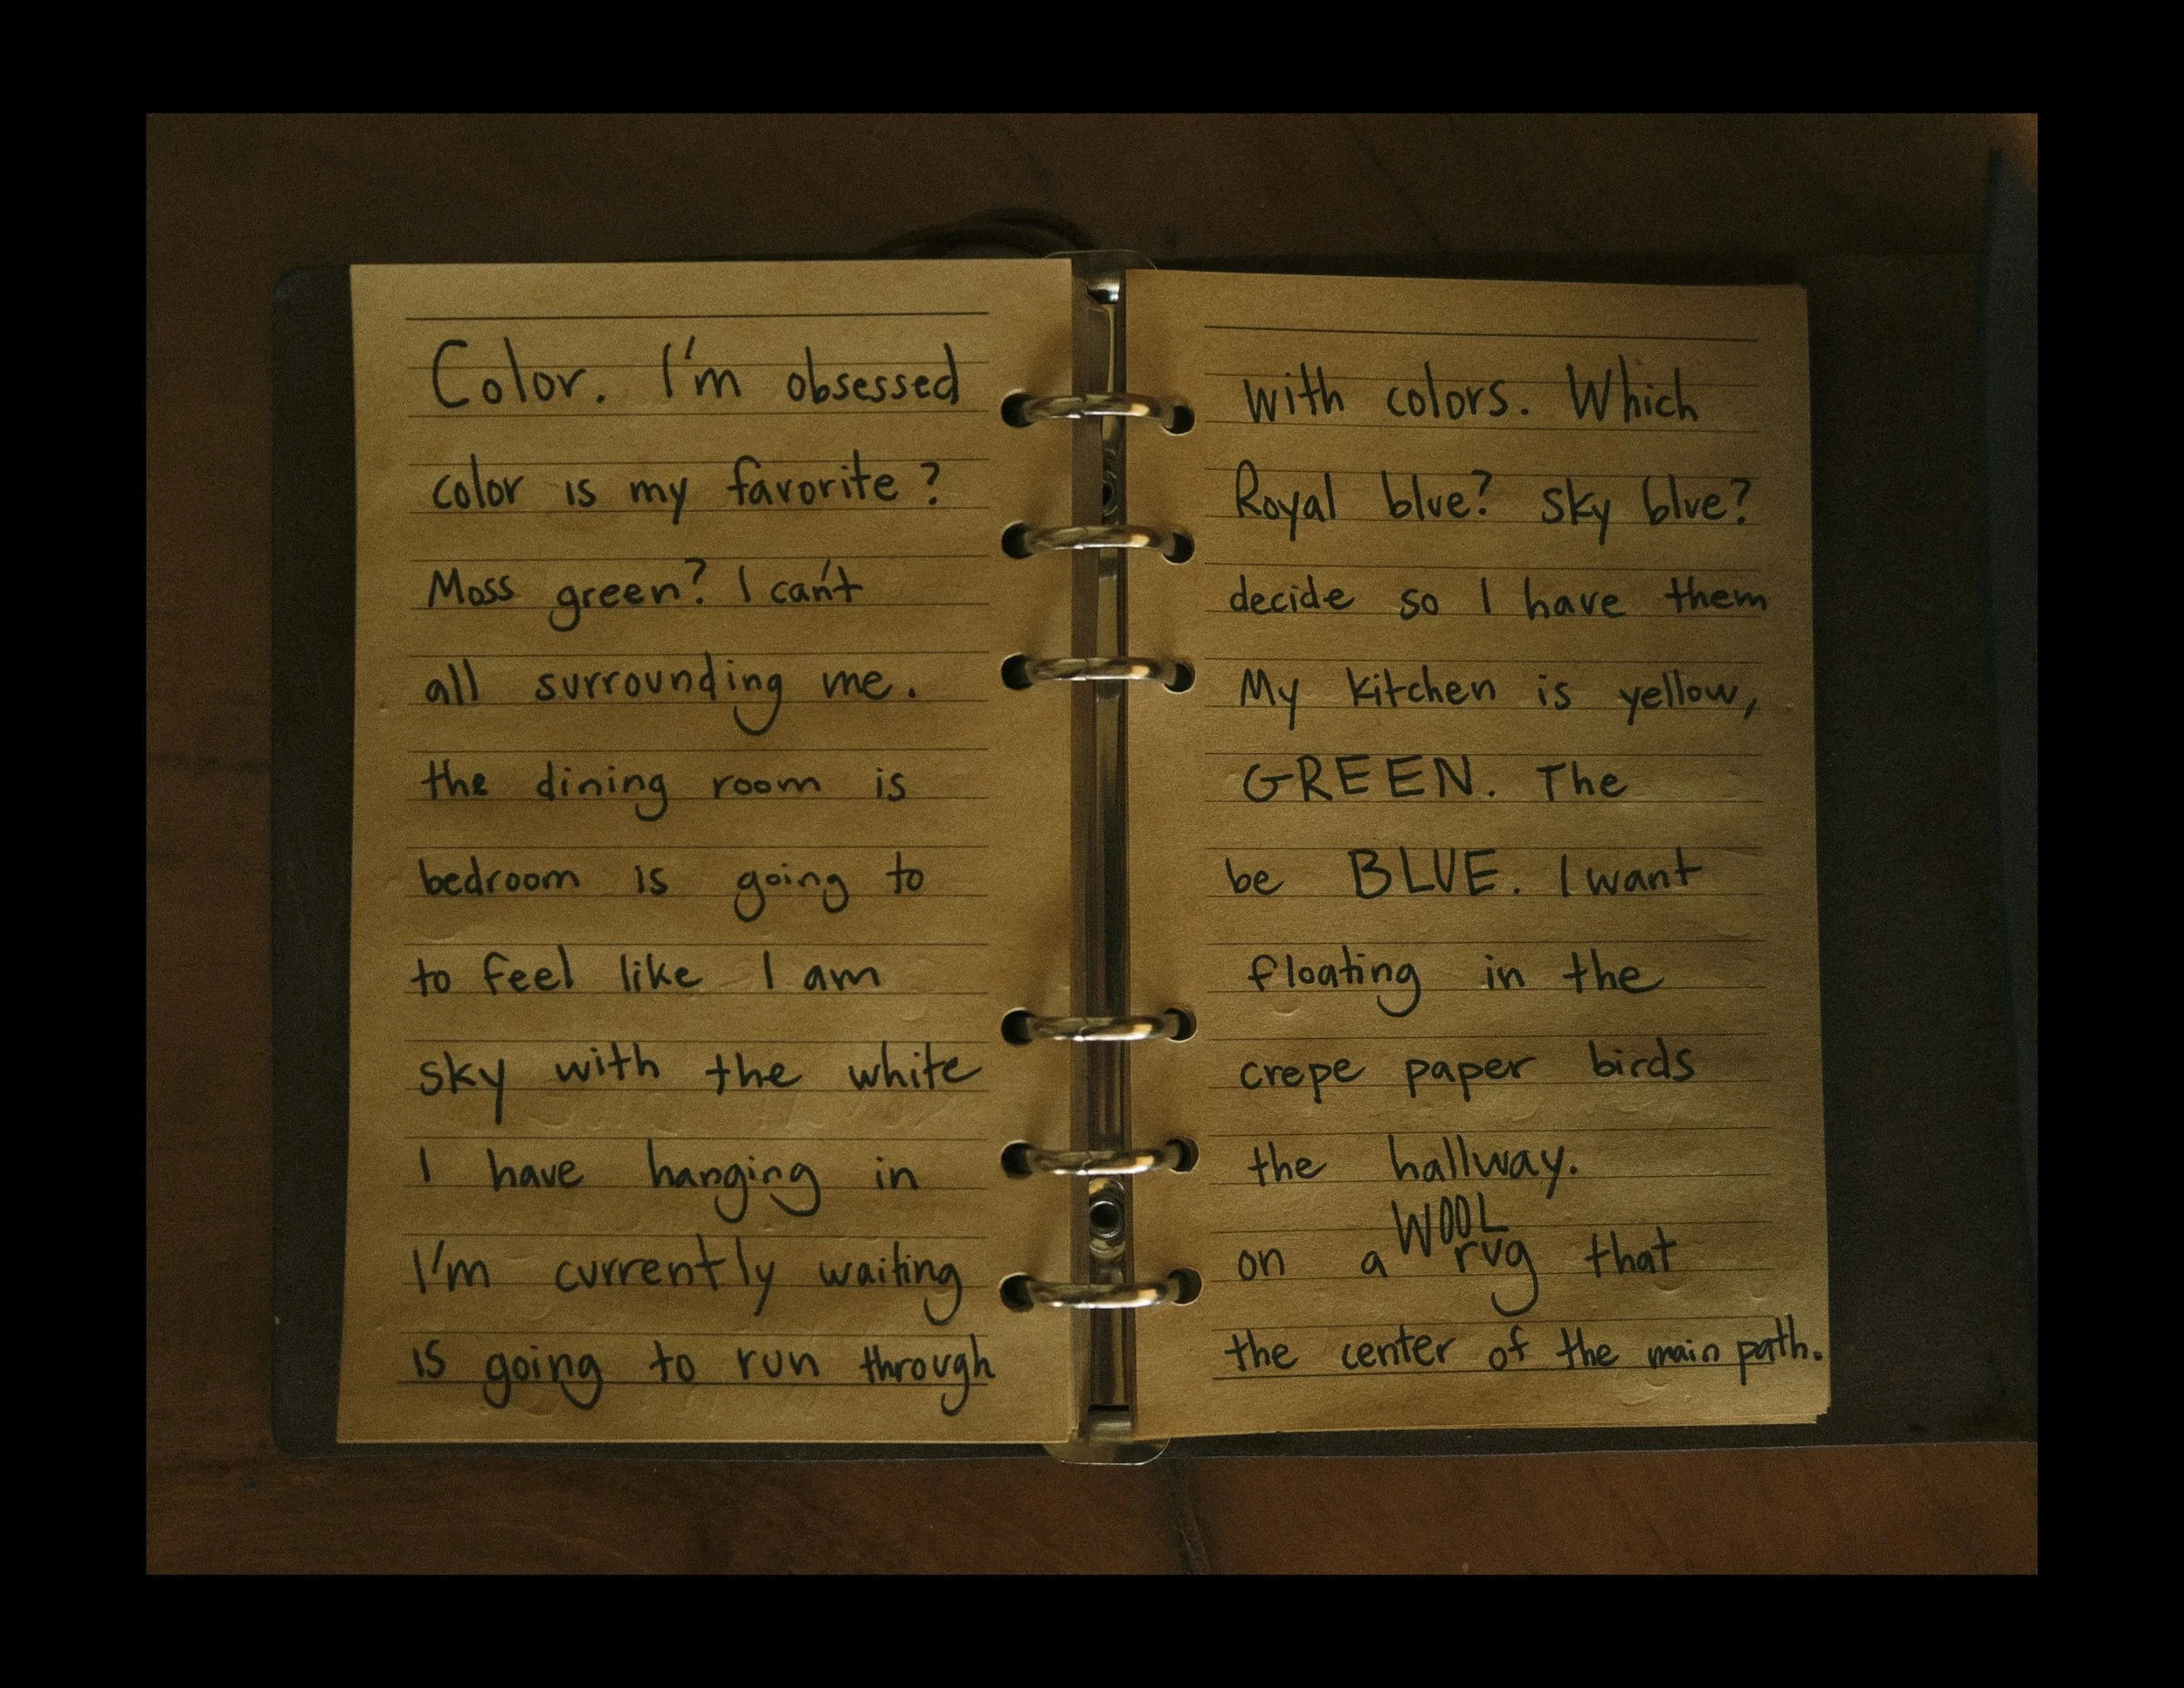 Color. I'm obsessed with colors. Which
color is my favorite? Royal blue? Sky blue?
Moss green? I can't decide so I have them
all surrounding me. My kitchen is yellow,
the dining room is GREEN. The
bedroom is going to be BLUE. I want
to feel like I am floating in the
sky with the white crepe paper birds
I have hanging in the hallway.
I'm currently waiting on a WOOL rug that
is going to run through the center of the main path.